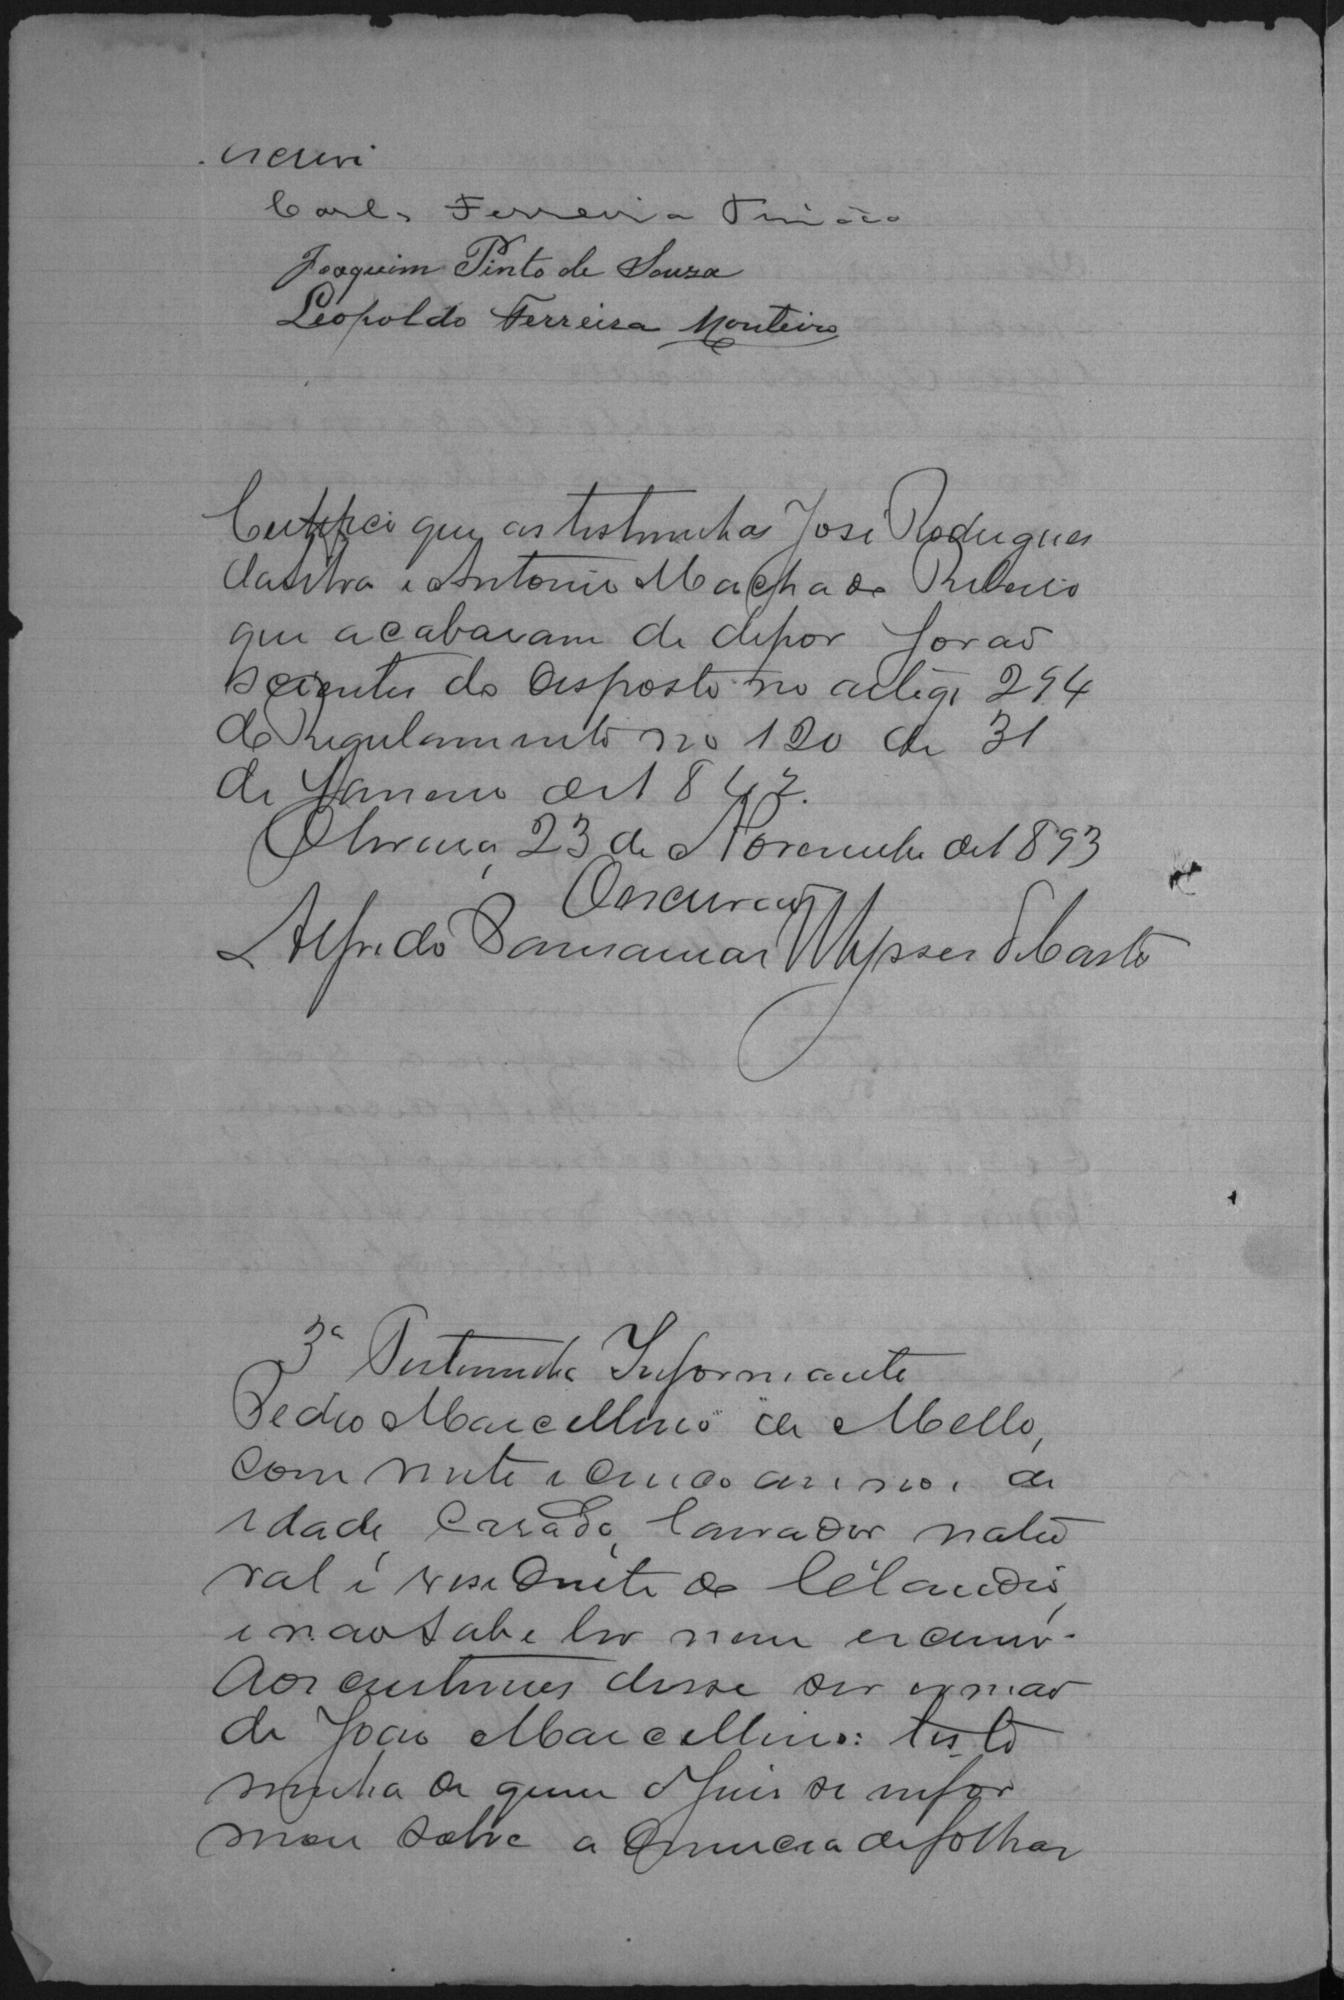 escrevi
Carlos Ferreira Tinôco
Joaquim Pinto de Souza
Leopoldo Ferreira Monteiro
Certifico que as testimunhas José Rodrigues
da Silva e Antonio Machado Ribeiro
que acabaram de depor forão
scientes do disposto no artigo 294
do Regulamento no 120 de 31
de Janeiro de 1842.
Oliveira, 23 de Novembro de 1893
O escrivão
Alfredo Ulysses de Castro
3ª Testimunha Informante
Pedro Marcellino de Mello,
com vinte e cinco annos de
idade, casado, lavrador natu
ral e residente do Claudio,
e não sabe ler nem escrever.
Aos custumes disse ser irmão
de João Marcellino: teste
munha de quem o Juis se infor
mou sobre a denuncia de folhas